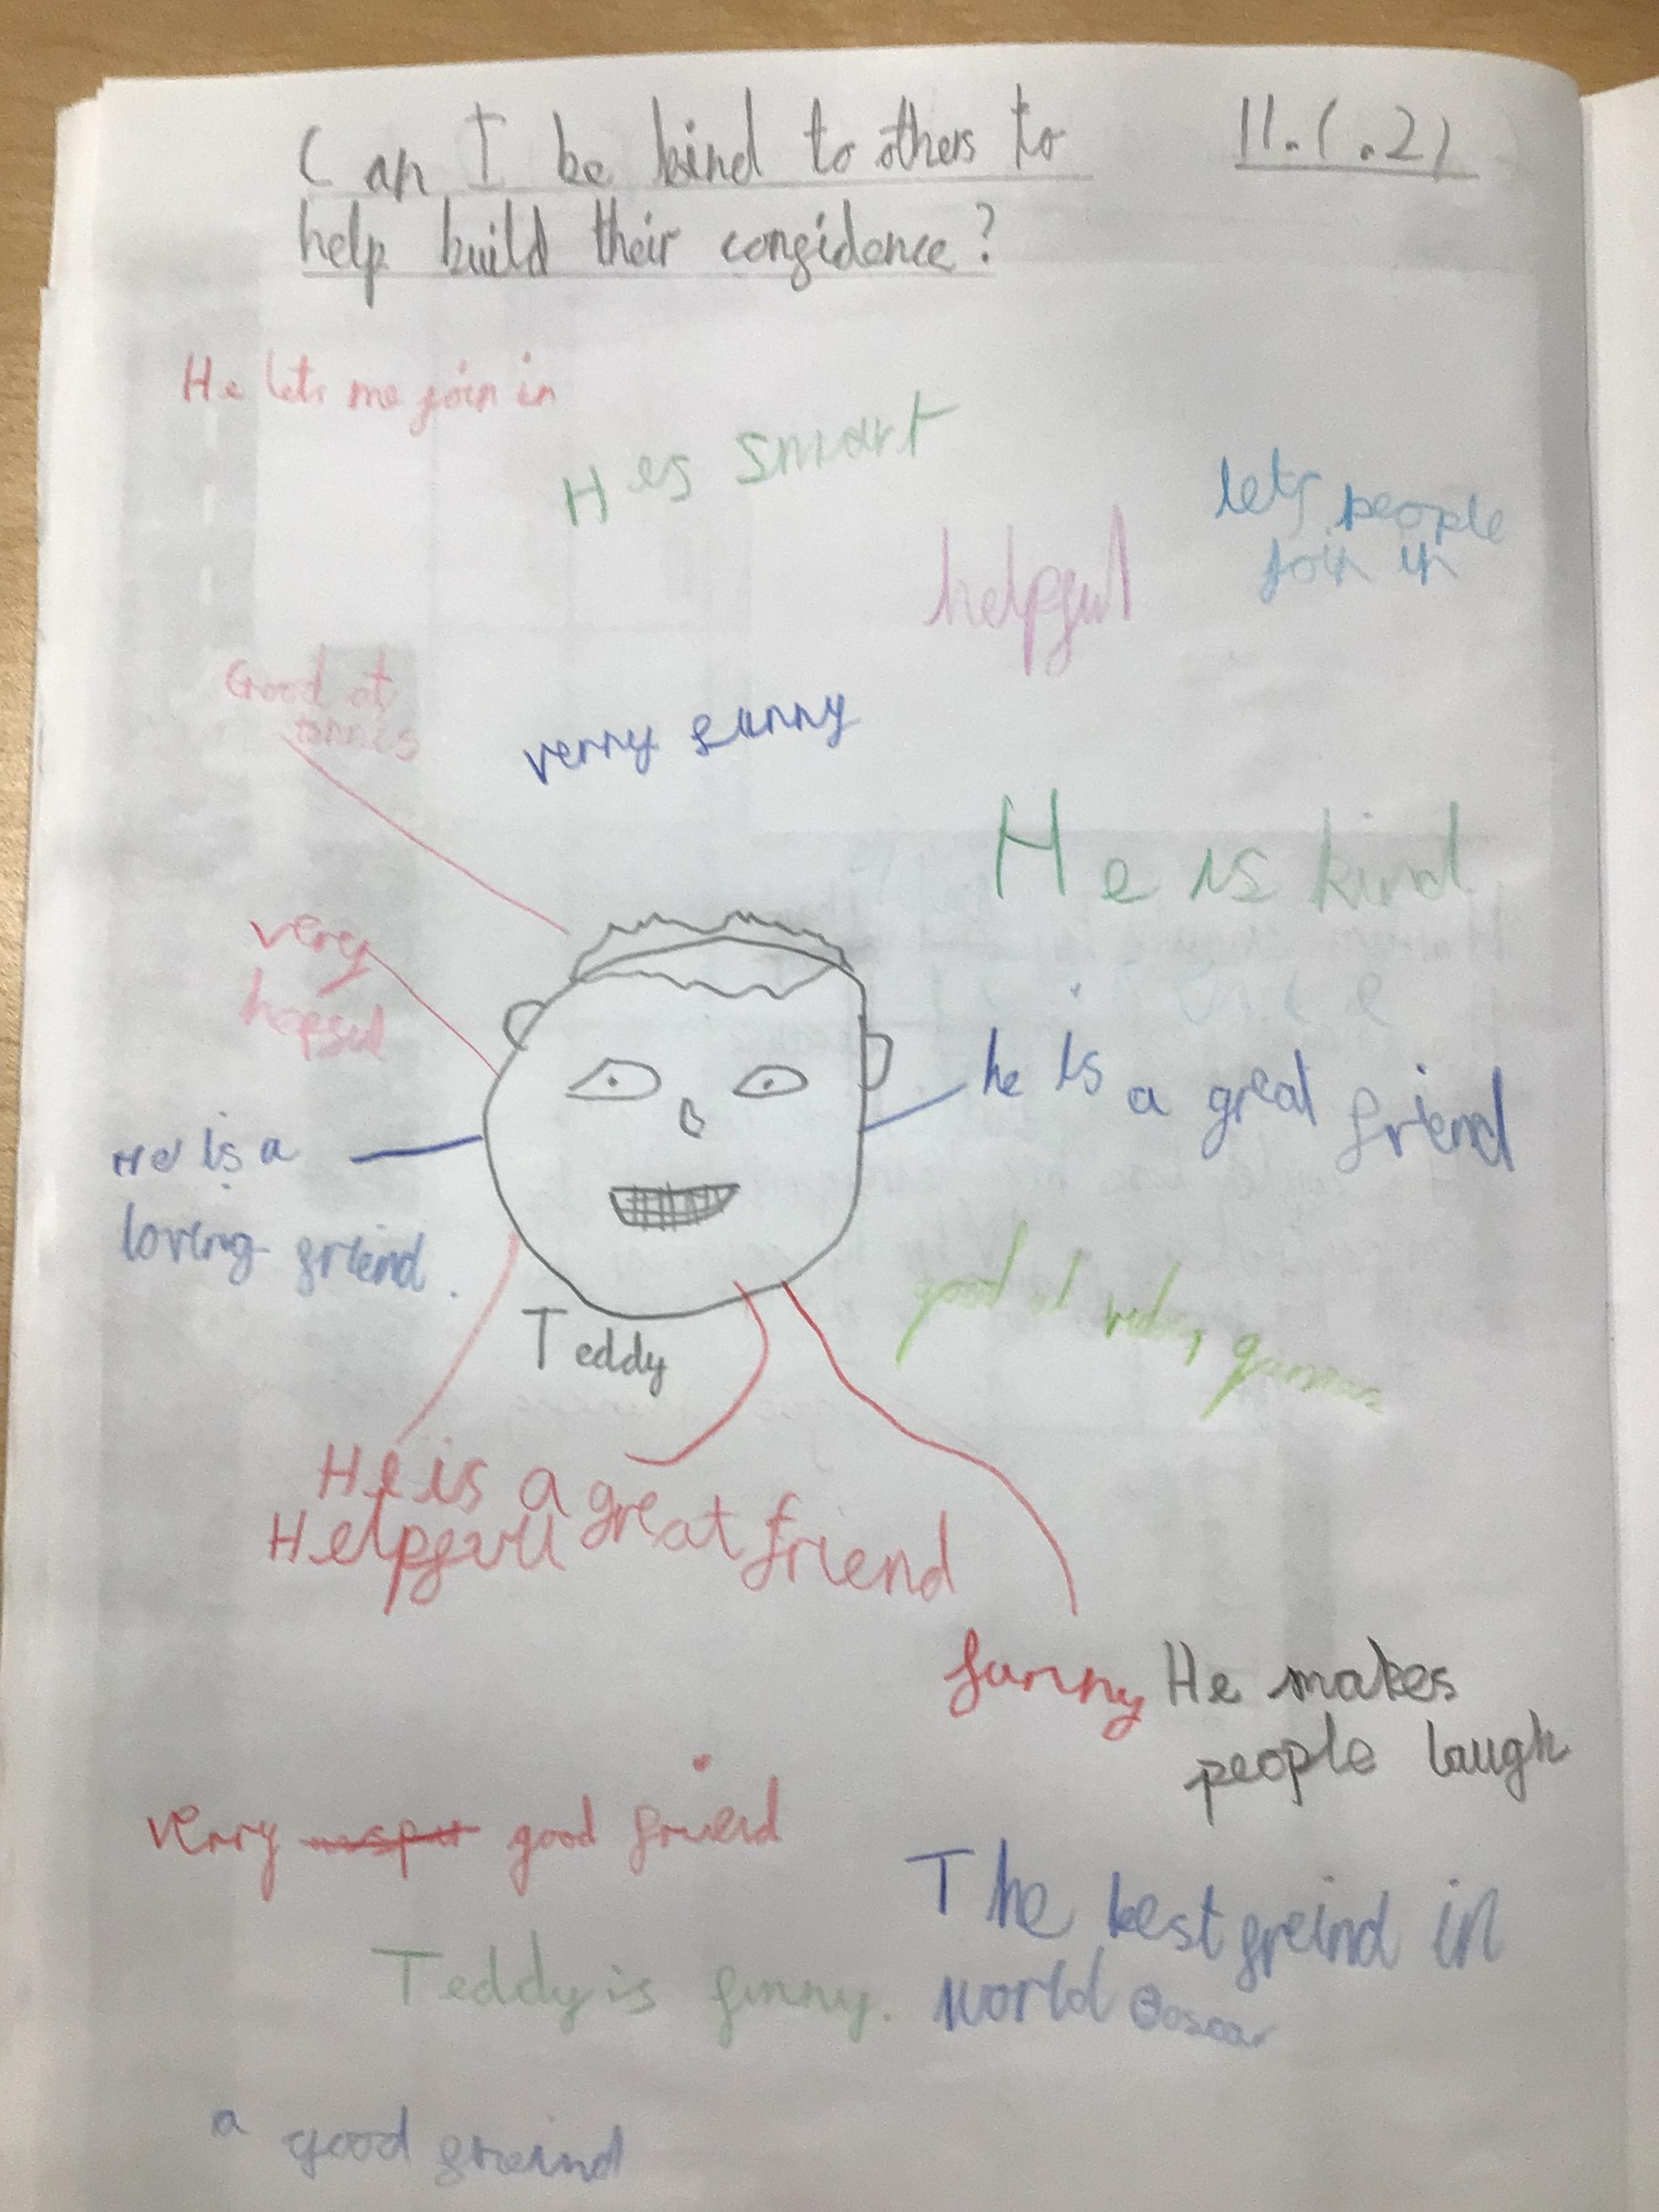 Can I be kind to others to
11.1.21
help build their confidence?
He lets me join in
Hes smart
lets people
join in
helpful
Good at
tennis
verry funny
He is kind
very
hepful
he is a great friend
He is a
loving friend.
good at video games
Teddy
He is a great friend
Helpfull
funny
He makes
people laugh
verry good friend
The best greind in
world
Teddy is funny.
a good freind